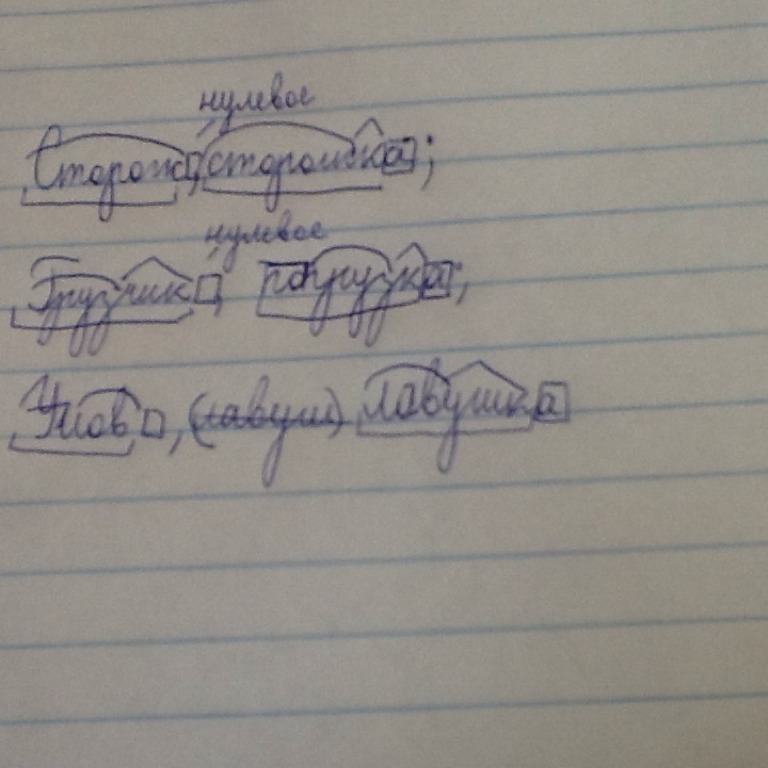 нулевое
Сторож, сторожка;
нулевое
Грузчик, погрузка;
Улов, (ловуш) ловушка